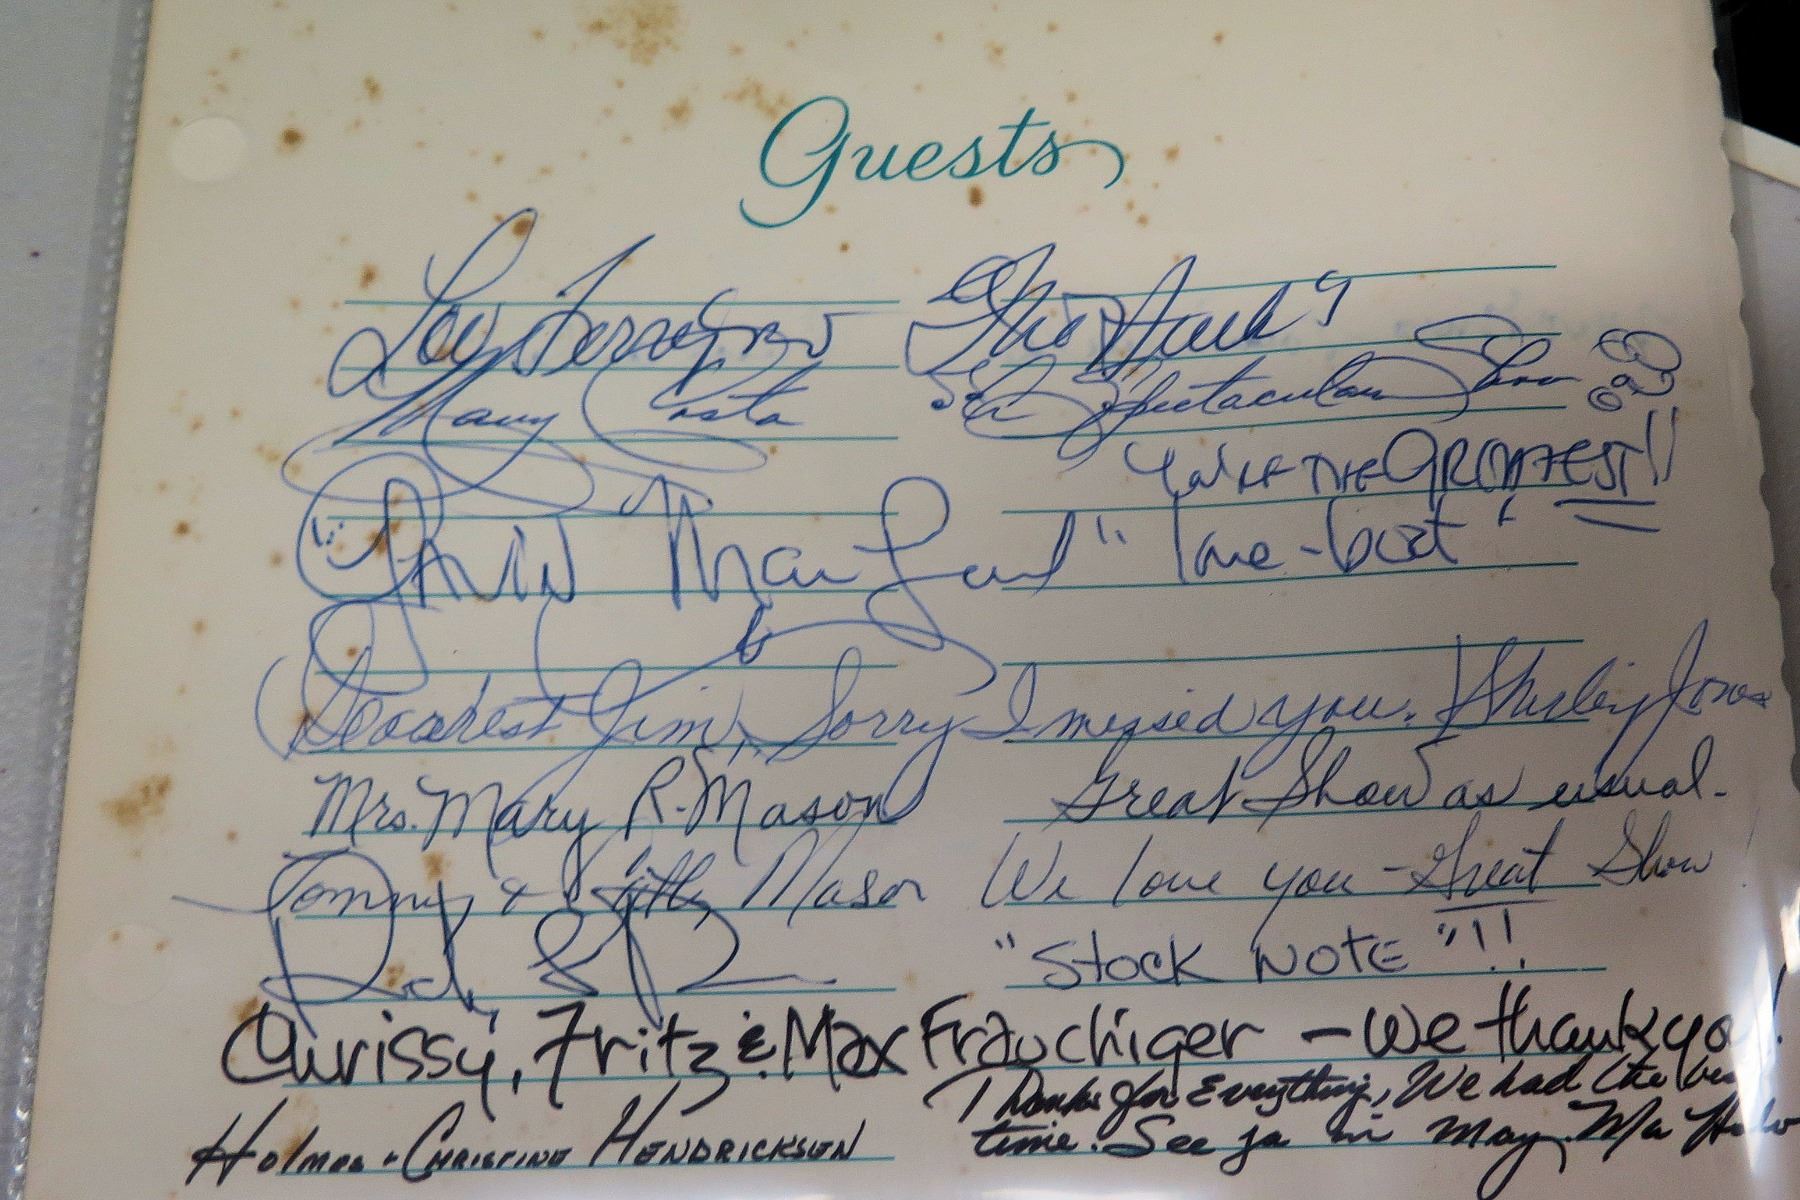 Guests
Lou Ferrigno "The Hulk"
Mary Costa Spectacular Show
You're THE GREATEST!!
Gavin MacLeod "love-boat"
Dearest Jim, Sorry I missed you. Shirley Jones
Mrs. Mary R. Mason Great Show as usual.
Tommy & Mason We love you - Great Show
"STOCK NOTE"!!
Chrissy, Fritz & Max Frauchiger - We thank you!
Thanks for Everything, We had the
Holmes & CHRISTINE HENDRICKSON time. See ya in May,